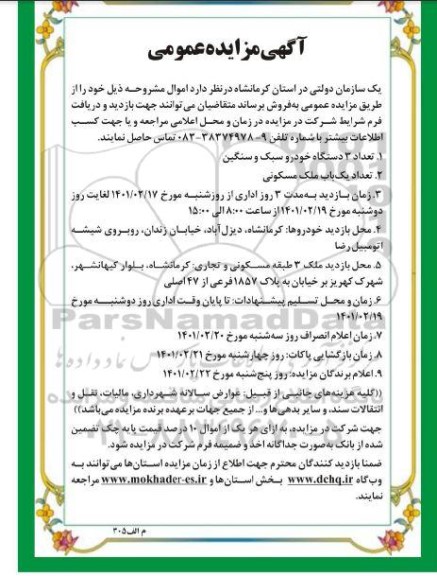 آگهی مزایده عمومی
یک سازمان دولتی در استان کرمانشاه در نظر دارد اموال مشروحه ذیل خود را از
طریق مزایده عمومی به‌فروش برساند متقاضیان می‌توانند جهت بازدید و دریافت
فرم شرایط شرکت در مزایده در زمان و محل اعلامی مراجعه و یا جهت کسب
اطلاعات بیشتر با شماره تلفن ۹-۳۸۳۷۴۹۷۸-۰۸۳ تماس حاصل نمایند.
۱. تعداد ۳ دستگاه خودرو سبک و سنگین
۲. تعداد یک‌باب ملک مسکونی
۳. زمان بازدید به‌مدت ۳ روز اداری از روزشنبه مورخ ۱۴۰۱/۰۲/۱۷ لغایت روز
دوشنبه مورخ ۱۴۰۱/۰۲/۱۹ از ساعت ۸:۰۰ الی ۱۵:۰۰
۴. محل بازدید خودروها: کرمانشاه، دیزل آباد، خیابان زندان، روبروی شیشه
اتومبیل رضا
۵. محل بازدید ملک ۳ طبقه مسکونی و تجاری: کرمانشاه، بلوار کیهانشهر،
شهرک کهریز بر خیابان به پلاک ۱۸۵۷ فرعی از ۴۷ اصلی
۶. زمان و محل تسلیم پیشنهادات: تا پایان وقت اداری روز دوشنبه مورخ
۱۴۰۱/۰۲/۱۹
۷. زمان اعلام انصراف روز سه‌شنبه مورخ ۱۴۰۱/۰۲/۲۰
۸. زمان بازگشایی پاکات: روز چهارشنبه مورخ ۱۴۰۱/۰۲/۲۱
۹. اعلام برندگان مزایده: روز پنج‌شنبه مورخ ۱۴۰۱/۰۲/۲۲
((کلیه هزینه‌های جانبی از قبیل: عوارض سالانه شهرداری، مالیات، نقل و
انتقالات سند، و سایر بدهی‌ها و... از جمیع جهات برعهده برنده مزایده می‌باشد))
جهت شرکت در مزایده، به ازای هر یک از اموال ۱۰ درصد قیمت پایه چک تضمین
شده از بانک به‌صورت جداگانه اخذ و ضمیمه فرم شرکت در مزایده شود.
ضمنا بازدید کنندگان محترم جهت اطلاع از زمان مزایده استان‌ها می‌توانند به
وب‌گاه www.dchq.ir بخش استان‌ها و www.mokhader-es.ir مراجعه
نمایند.
م الف ۳۰۵
ParsNamadData